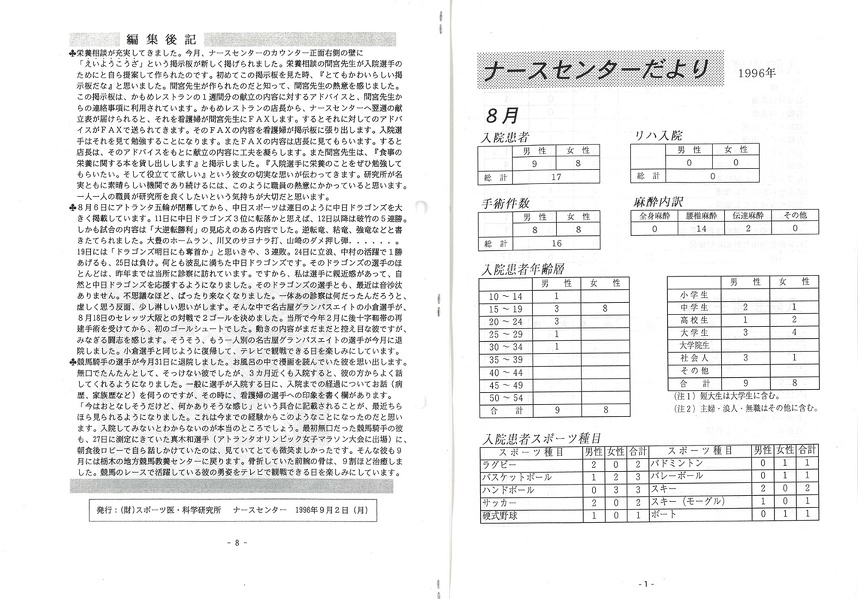 編集後記
♣栄養相談が充実してきました。今月、ナースセンターのカウンター正面右側の壁に
「えいようこうざ」という掲示板が新しく掲げられました。栄養相談の間宮先生が入院選手の
ためにと自ら提案して作られたのです。初めてこの掲示板を見た時、『とてもかわいらしい掲
示板だな』と思いました。間宮先生が作られたのだと知って、間宮先生の熱意を感じました。
この掲示板は、かもめレストランの1週間分の献立の内容に対するアドバイスと、間宮先生か
らの連絡事項に利用されています。かもめレストランの店長から、ナースセンターへ翌週の献
立表が届けられると、それを看護婦が間宮先生にFAXします。するとそれに対してのアドバ
イスがFAXで送られてきます。そのFAXの内容を看護婦が掲示板に張り出します。入院選
手はそれを見て勉強することになります。またFAXの内容は店長に見てもらいます。すると
店長は、そのアドバイスをもとに献立の内容に工夫を凝らします。また間宮先生は、『食事の
栄養に関する本を貸し出しします』と掲示しました。『入院選手に栄養のことをぜひ勉強して
もらいたい。そして役立てて欲しい』という彼女の切実な思いが伝わってきます。研究所が名
実ともに素晴らしい機関であり続けるには、このように職員の熱意にかかっていると思います。
一人一人の職員が研究所を良くしたいという気持ちが大切だと思います。
♣8月6日にアトランタ五輪が閉幕してから、中日スポーツは連日のように中日ドラゴンズを大
きく掲載しています。11日に中日ドラゴンズ3位に転落かと思えば、12日以降は破竹の5連勝。
しかも試合の内容は「大逆転勝利」の見応えのある内容でした。逆転竜、粘竜、強竜などと書
きたてられました。大豊のホームラン、川又のサヨナラ打、山崎のダメ押し弾.......
19日には「ドラゴンズ明日にも奪首か」と思いきや、3連敗。24日に立浪、中村の活躍で1勝
あげるも、25日は負け。何とも波乱に満ちた中日ドラゴンズです。そのドラゴンズの選手のほ
とんどは、昨年までは当所に診察に訪れています。ですから、私は選手に親近感があって、自
然と中日ドラゴンズを応援するようになりました。そのドラゴンズの選手とも、最近は音沙汰
ありません。不思議なほど、ぱったり来なくなりました。一体あの診察は何だったんだろうと、
虚しく思う反面、少し淋しい思いがします。そんな中で名古屋グランパスエイトの小倉選手が、
8月18日のセレッソ大阪との対戦で2ゴールを決めました。当所で今年2月に後十字靱帯の再
建手術を受けてから、初のゴールシュートでした。動きの内容がまだまだと控え目な彼ですが、
みなぎる闘志を感じます。そうそう、もう一人別の名古屋グランパスエイトの選手が今月に退
院しました。小倉選手と同じように復帰して、テレビで観戦できる日を楽しみにしています。
♣競馬騎手の選手が今月31日に退院しました。お風呂の中で漫画を読んでいた彼を思い出します。
無口でたんたんとして、そっけない彼でしたが、3カ月近くも入院すると、彼の方からよく話
してくれるようになりました。一般に選手が入院する日に、入院までの経過についてお話（病
歴、家族歴など）を伺うのですが、その時に、看護婦の選手への印象を書く欄があります。
「今はおとなしそうだけど、何かありそうな感じ」という具合に記載されることが、最近ちら
ほら見られるようになりました。これは今までの経験からこのようなことになったのだと思い
ます。入院してみないとわからないのが本当のところでしょう。最初無口だった競馬騎手の彼
も、27日に測定にきていた真木和選手（アトランタオリンピック女子マラソン大会に出場）に、
朝食後ロビーで自ら話しかけていたのは、見ていてとても微笑ましかったです。そんな彼も9
月には栃木の地方競馬教養センターに戻ります。骨折していた前腕の骨は、9割ほど治癒しま
した。競馬のレースで活躍している彼の勇姿をテレビで観戦できる日を楽しみにしています。
発行：(財)スポーツ医・科学研究所　ナースセンター　1996年9月2日（月）
- 8 -
ナースセンターだより　1996年
8月
入院患者
男 性　女 性
9　8
総 計　17
リハ入院
男 性　女 性
0　0
総 計　0
手術件数
男 性　女 性
8　8
総 計　16
麻酔内訳
全身麻酔　腰椎麻酔　伝達麻酔　その他
0　14　2　0
入院患者年齢層
男 性　女 性
10～14　1
15～19　3　8
20～24　3
25～29　1
30～34　1
35～39
40～44
45～49
50～54
合 計　9　8
男 性　女 性
小学生
中学生　2　1
高校生　1　2
大学生　3　4
大学院生
社会人　3　1
その他
合 計　9　8
(注1) 短大生は大学生に含む。
(注2) 主婦・浪人・無職はその他に含む。
入院患者スポーツ種目
スポーツ種目　男性　女性　合計　スポーツ種目　男性　女性　合計
ラグビー　2　0　2　バドミントン　0　1　1
バスケットボール　1　2　3　バレーボール　0　1　1
ハンドボール　0　3　3　スキー　2　0　2
サッカー　2　0　2　スキー（モーグル）　1　0　1
硬式野球　1　0　1　ボート　0　1　1
- 1 -